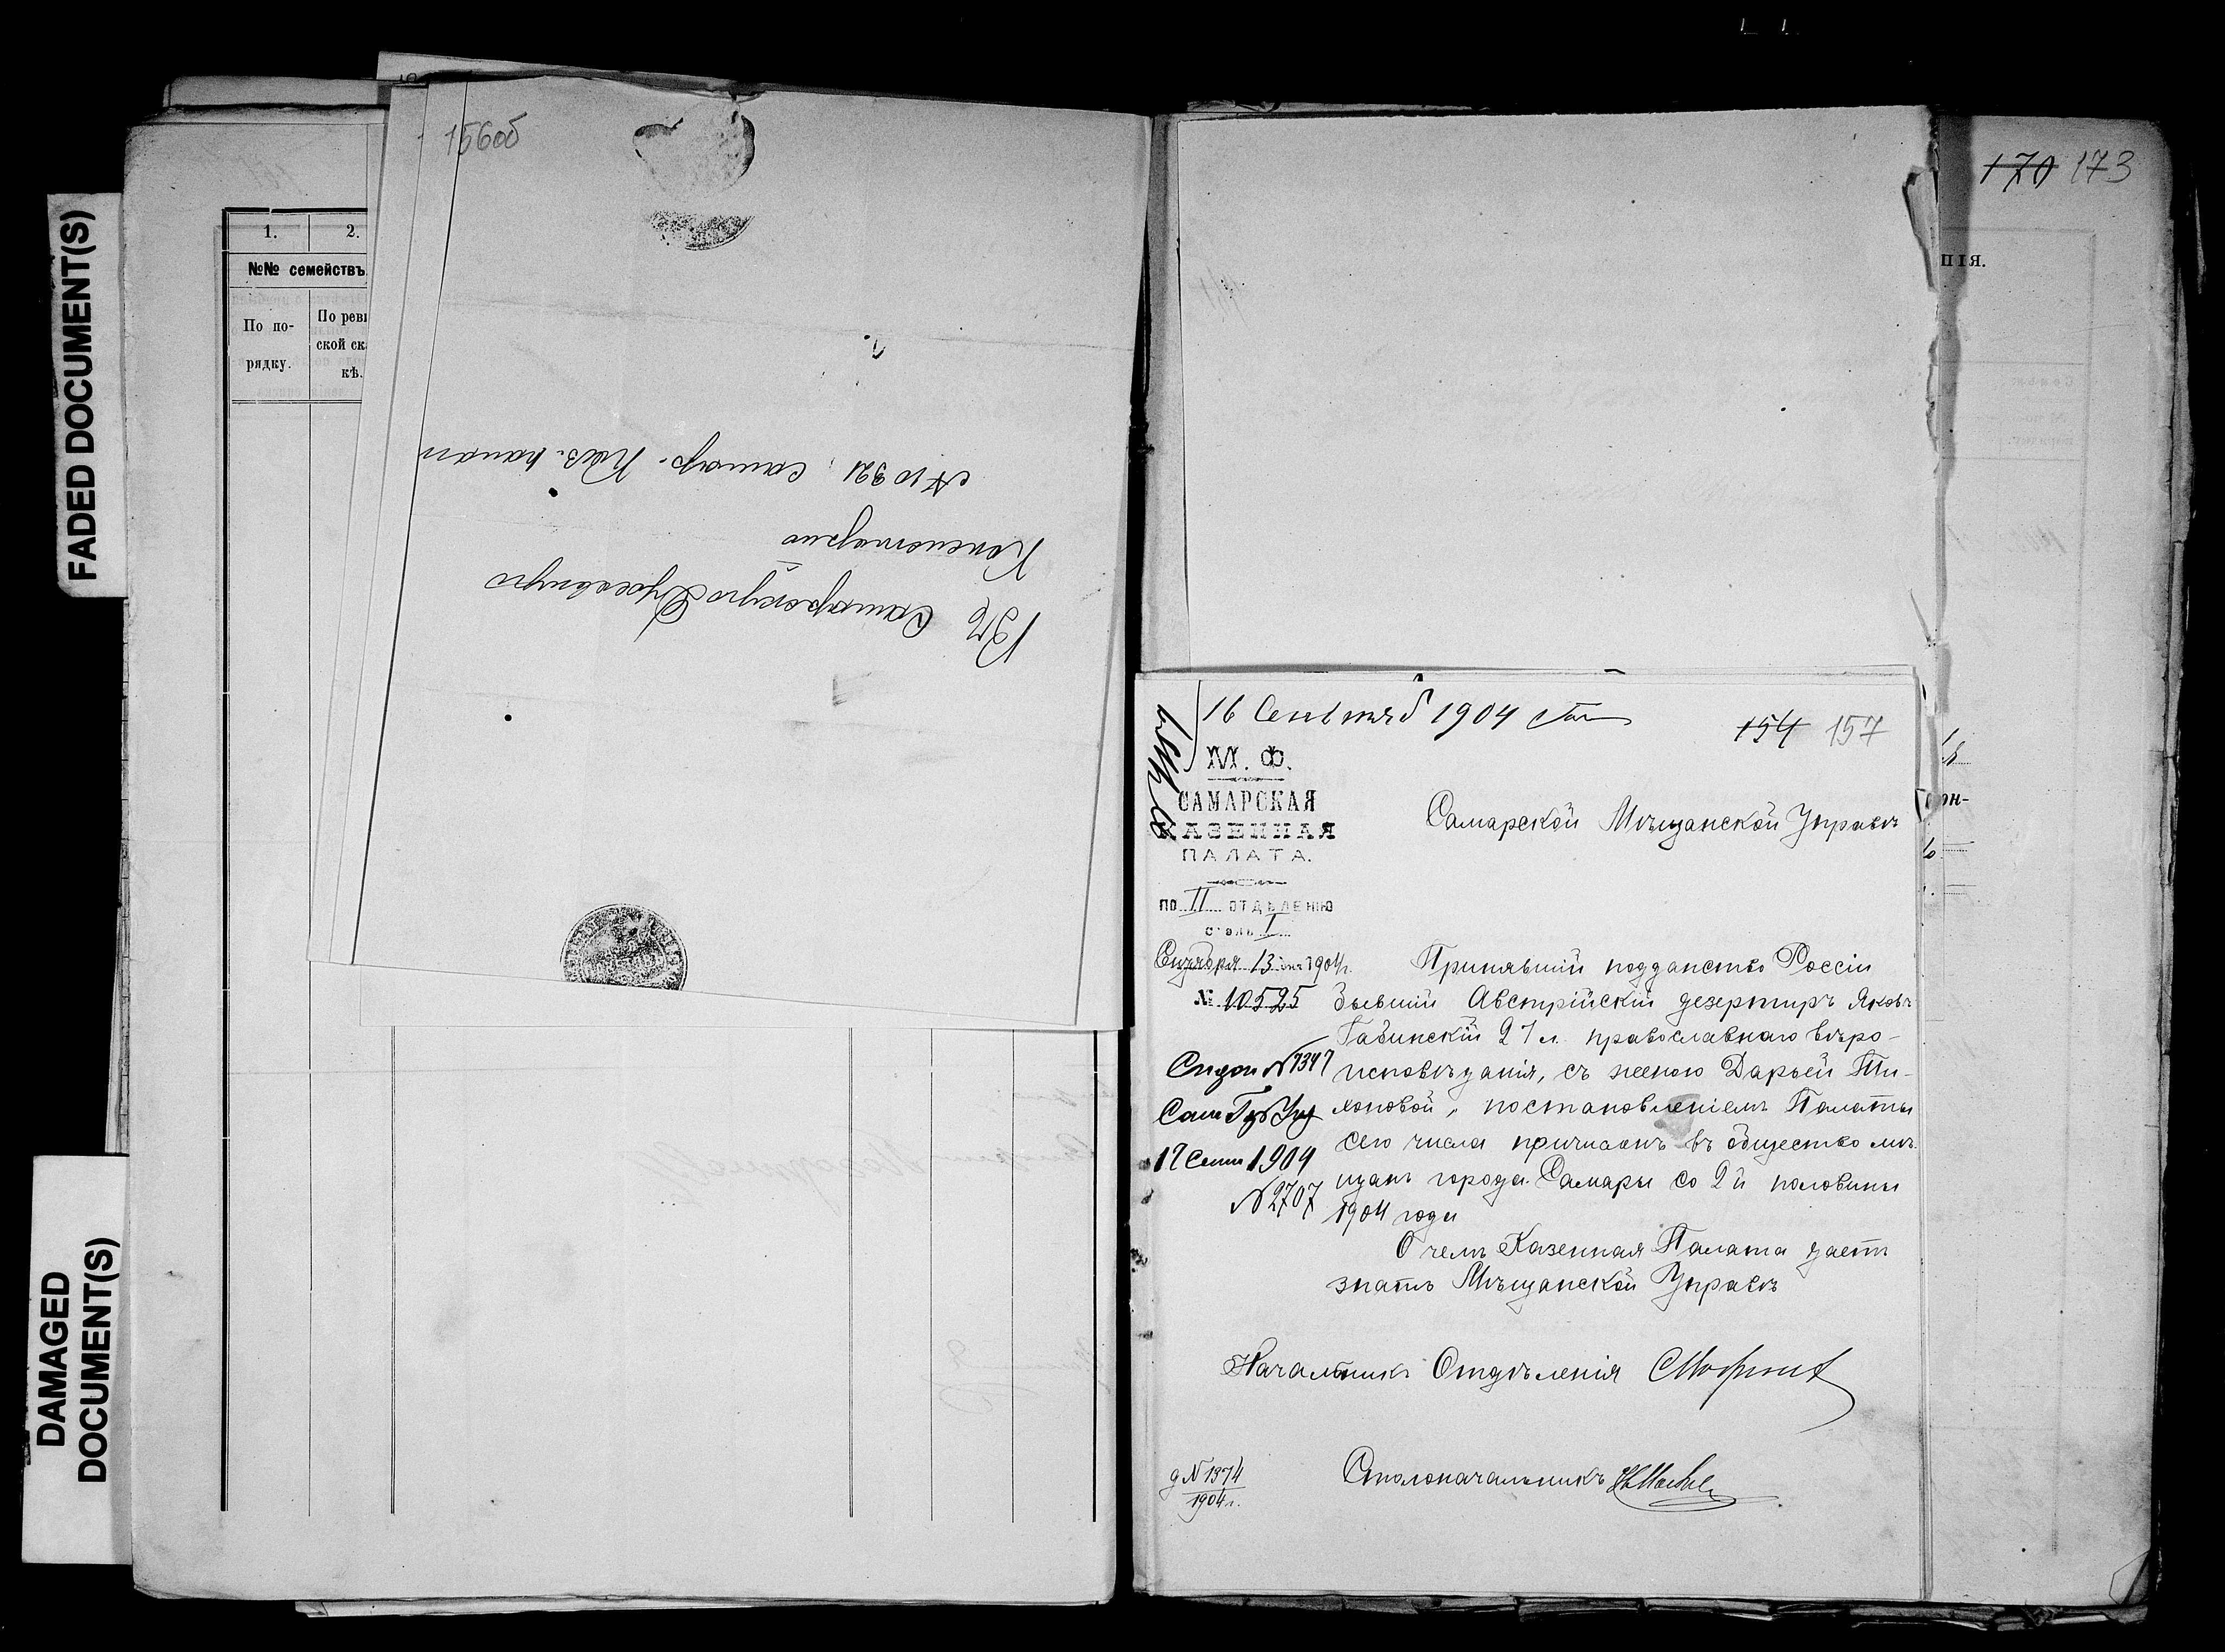 FADED DOCUMENT(S)
DAMAGED
DOCUMENT(S)
156об
1. 2.
№№ семействъ
По по-
рядку.
По реви
ской ск
кѣ.
Въ Самарскую Духовную
Консисторію
№ 10321 Самар. Каз. палат
170 173
пія.
16 Сентяб 1904
154 157
М. Ф.
САМАРСКАЯ
КАЗЕННАЯ
ПАЛАТА.
ПО II ОТДѢЛЕНІЮ
столъ I
Сентября 13 дня 1904г.
№ 10525
Самарской Мѣщанской Управѣ
Принявшій подданство Россіи
бывшій Австрійскій дезертиръ Яковъ
Габинскій 27 л. православнаго вѣро-
исповѣданія, съ женою Дарьей Ти-
хоновой, постановленіемъ Палаты
сего числа причисленъ въ общество мѣ-
щанъ города Самары со 2й половины
1904 года
О чемъ Казенная Палата даетъ
знать Мѣщанской Управѣ
№ 7347
Сам Губ
17 Сент 1904
№ 2707
Начальникъ Отдѣленія
Столоначальникъ
д № 1374
1904 г.